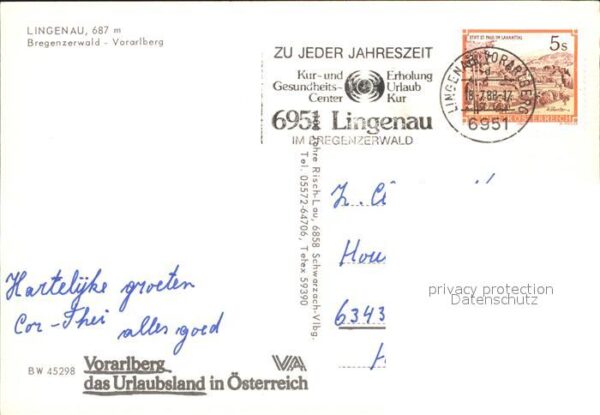 LINGENAU, 687 m
Bregenzerwald - Vorarlberg
ZU JEDER JAHRESZEIT
Kur- und Gesundheits- Center
Erholung Urlaub Kur
6951 Lingenau
IM BREGENZERWALD
STIFT ST. PAUL IM LAVANTTAL
5s
LINGENAU, VORARLBERG
18.7.88-17
6951
Risch-Lau, 6858 Schwarzach-Vlbg.
Tel. 05572-64706, Telex 59390
6343
privacy protection
Datenschutz
Hartelijke groeten
Cor-Thei alles goed
BW 45298
Vorarlberg
das Urlaubsland in Österreich